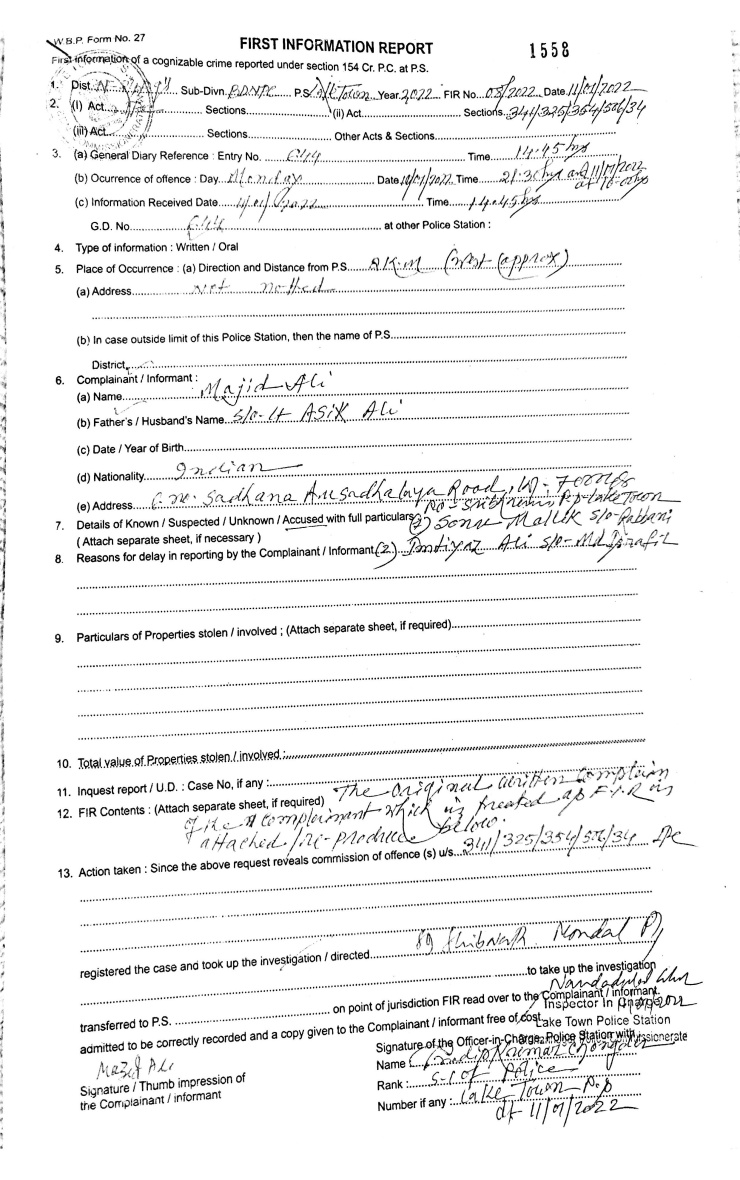 W.B.P. Form No. 27
FIRST INFORMATION REPORT
1558
First information of a cognizable crime reported under section 154 Cr. P.C. at P.S.
1. Dist. Sub-Divn. P.S. Lake Town Year 2022 FIR No. 05/2022 Date 11/01/2022
2. (I) Act Sections (ii) Act Sections 341/325/354/506/34
(iii) Act Sections Other Acts & Sections
3. (a) General Diary Reference : Entry No. 644 Time 14.45 hrs
(b) Ocurrence of offence : Day Monday Date 10/01/2022 Time 21.30 hrs and 11/01/2022
(c) Information Received Date 11/01/2022 Time 14.45 hrs
G.D. No 644 at other Police Station :
4. Type of information : Written / Oral
5. Place of Occurrence : (a) Direction and Distance from P.S. (West (approx)
(a) Address Not noted
(b) In case outside limit of this Police Station, then the name of P.S.
District
6. Complainant / Informant :
(a) Name Majid Ali
(b) Father's / Husband's Name S/o - Lt Asik Ali
(c) Date / Year of Birth
(d) Nationality Indian
(e) Address Sadhana Ausadhalaya Road,
P.S - Lake Town
7. Details of Known / Suspected / Unknown / Accused with full particulars Mallik S/o - Rabbani
( Attach separate sheet, if necessary )
8. Reasons for delay in reporting by the Complainant / Informant (2) Ali S/o - Md
9. Particulars of Properties stolen / involved ; (Attach separate sheet, if required)
10. Total value of Properties stolen / involved :
11. Inquest report / U.D. : Case No, if any :
12. FIR Contents : (Attach separate sheet, if required) The original written complain
of the complainant which is treated as F.I.R is
attached / re-produce below.
13. Action taken : Since the above request reveals commission of offence (s) u/s 341/325/354/506/34 IPC
registered the case and took up the investigation / directed Shibnath Mondal
to take up the investigation
transferred to P.S. on point of jurisdiction FIR read over to the Complainant / informant
Inspector In
admitted to be correctly recorded and a copy given to the Complainant / informant free of cost
Lake Town Police Station
Signature of the Officer-in-Charge, Police Station with
Name Kumar
Signature / Thumb impression of
the Complainant / informant
Rank : S.I of Police
Number if any : Lake Town P.S
dt 11/01/2022